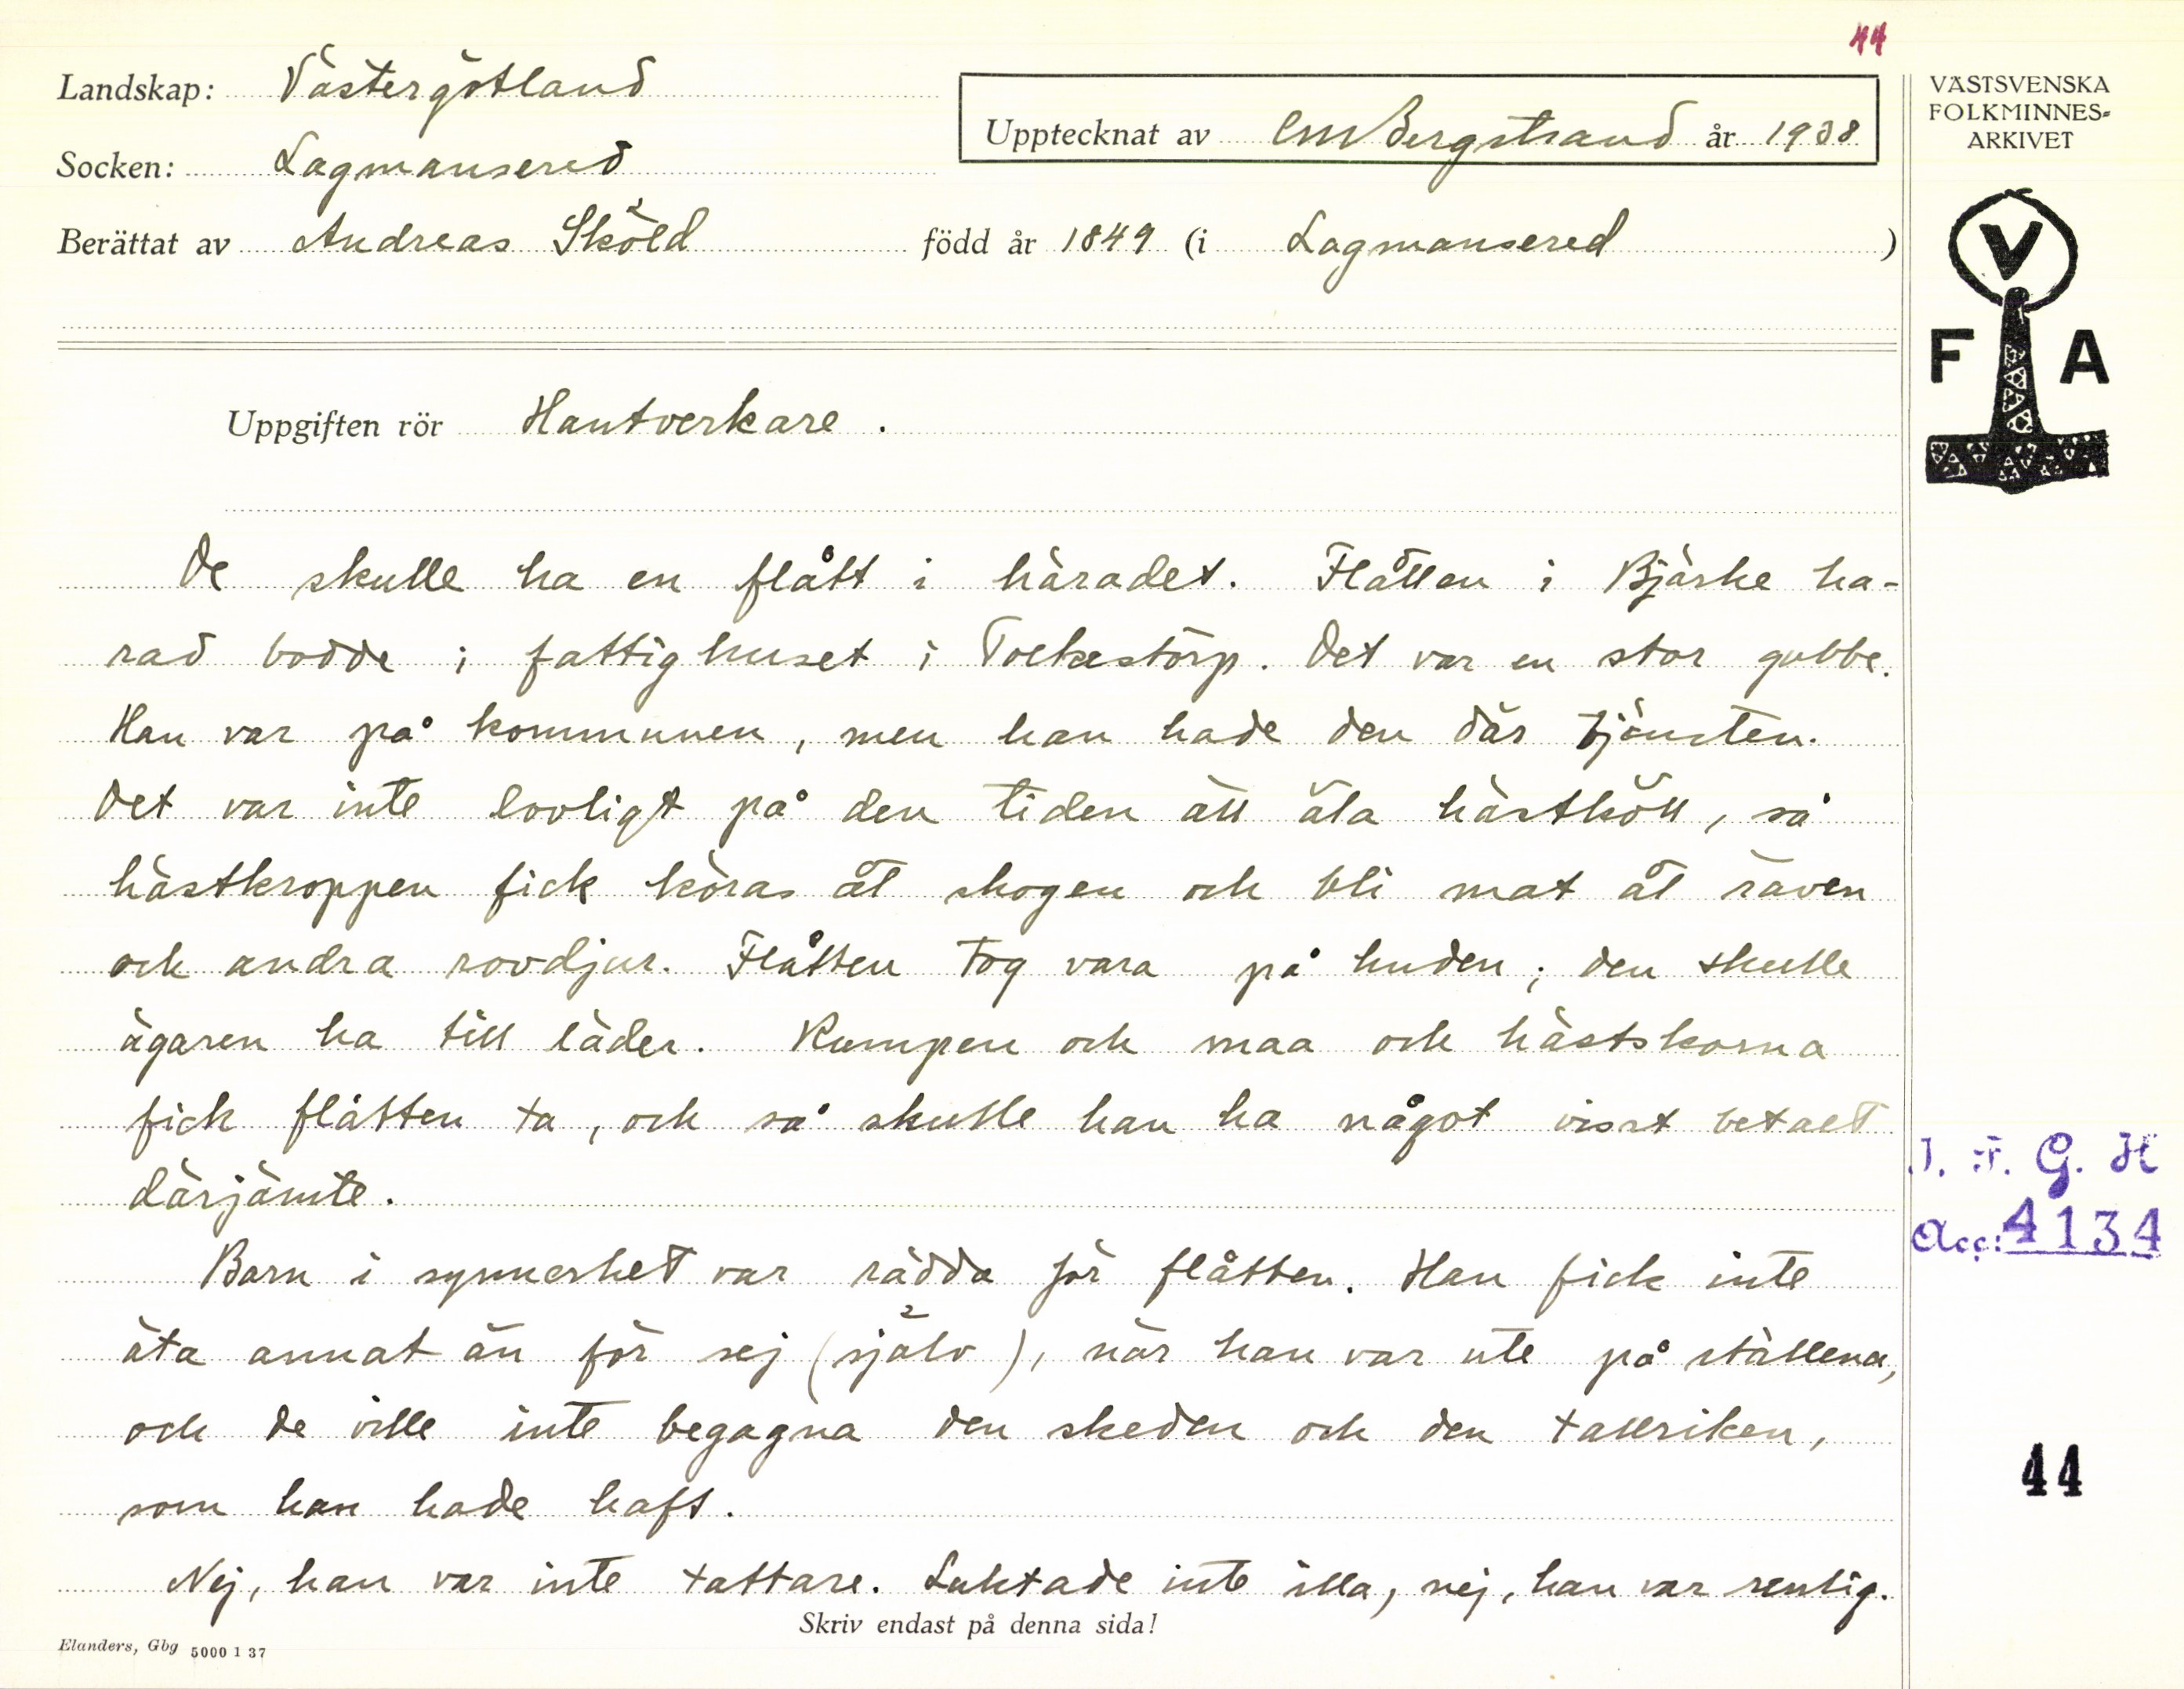 44
Landskap: Västergötland
Upptecknat av CM Bergstrand år 1938
Socken: Lagmansered
Berättat av Andreas Sköld född år 1849 (i Lagmansered)
Uppgiften rör Hantverkare.
De skulle ha en flått i häradet. Flåtten i Bjärke hä-
rad bodde i fattighuset i Tockestorp. Det var en stor gubbe.
Han var på kommunen, men han hade den där tjänsten.
Det var inte lovligt på den tiden att äta hästkött, så
hästkroppen fick köras åt skogen och bli mat åt räven
och andra rovdjur. Flåtten tog vara på huden; den skulle
ägaren ha till läder. Rumpen och maa och hästskorna
fick flåtten ta, och så skulle han ha något visst betalt
därjämte.
Barn i synnerhet var rädda för flåtten. Han fick inte
äta annat än för sej (själv), när han var ute på ställena,
och de ville inte begagna den skeden och den tallriken,
som han hade haft.
Nej, han var inte tattare. Luktade inte illa, nej, han var renlig.
Skriv endast på denna sida!
Elanders, Gbg 5000 1 37
VÄSTSVENSKA
FOLKMINNES-
ARKIVET
V
F A
I. F. G. H
Acc: 4134
44